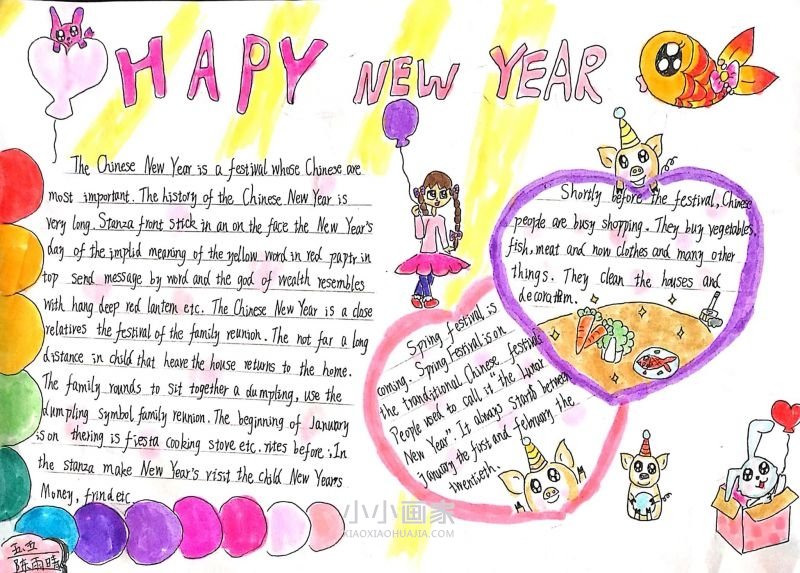 HAPY NEW YEAR
The Chinese New Year is a festival whose Chinese are
most important. The history of the Chinese New Year is
very long. Stanza front stick in an on the face the New Year's
day of the implid meaning of the yellow word in red paptr in
top send message by word and the god of wealth resembles
with hang deep red lantern etc. The Chinese New Year is a close
relatives the festival of the family reunion. The not far a long
distance in child that heave the house returns to the home.
The family rounds to sit together a dumpling, use the
dumpling symbol family reunion. The beginning of January
is on thering is fiesta cooking stove etc. rites before; In
the stanza make New Year's visit the child New Years
Money, frind etc
Spring festival is
coming. Spring Festival is on
the tranditional Chinese festivals
People used to call it "the Lunar
New Year". It always starts between
January the first and february the
twentieth.
Shortly before the festival, Chinese
people are busy shopping. They buy vegetables,
fish, meat and now clothes and many other
things. They clean the houses and
五五
陈雨晴
小小画家
XIAOXIAOHUAJIA.COM